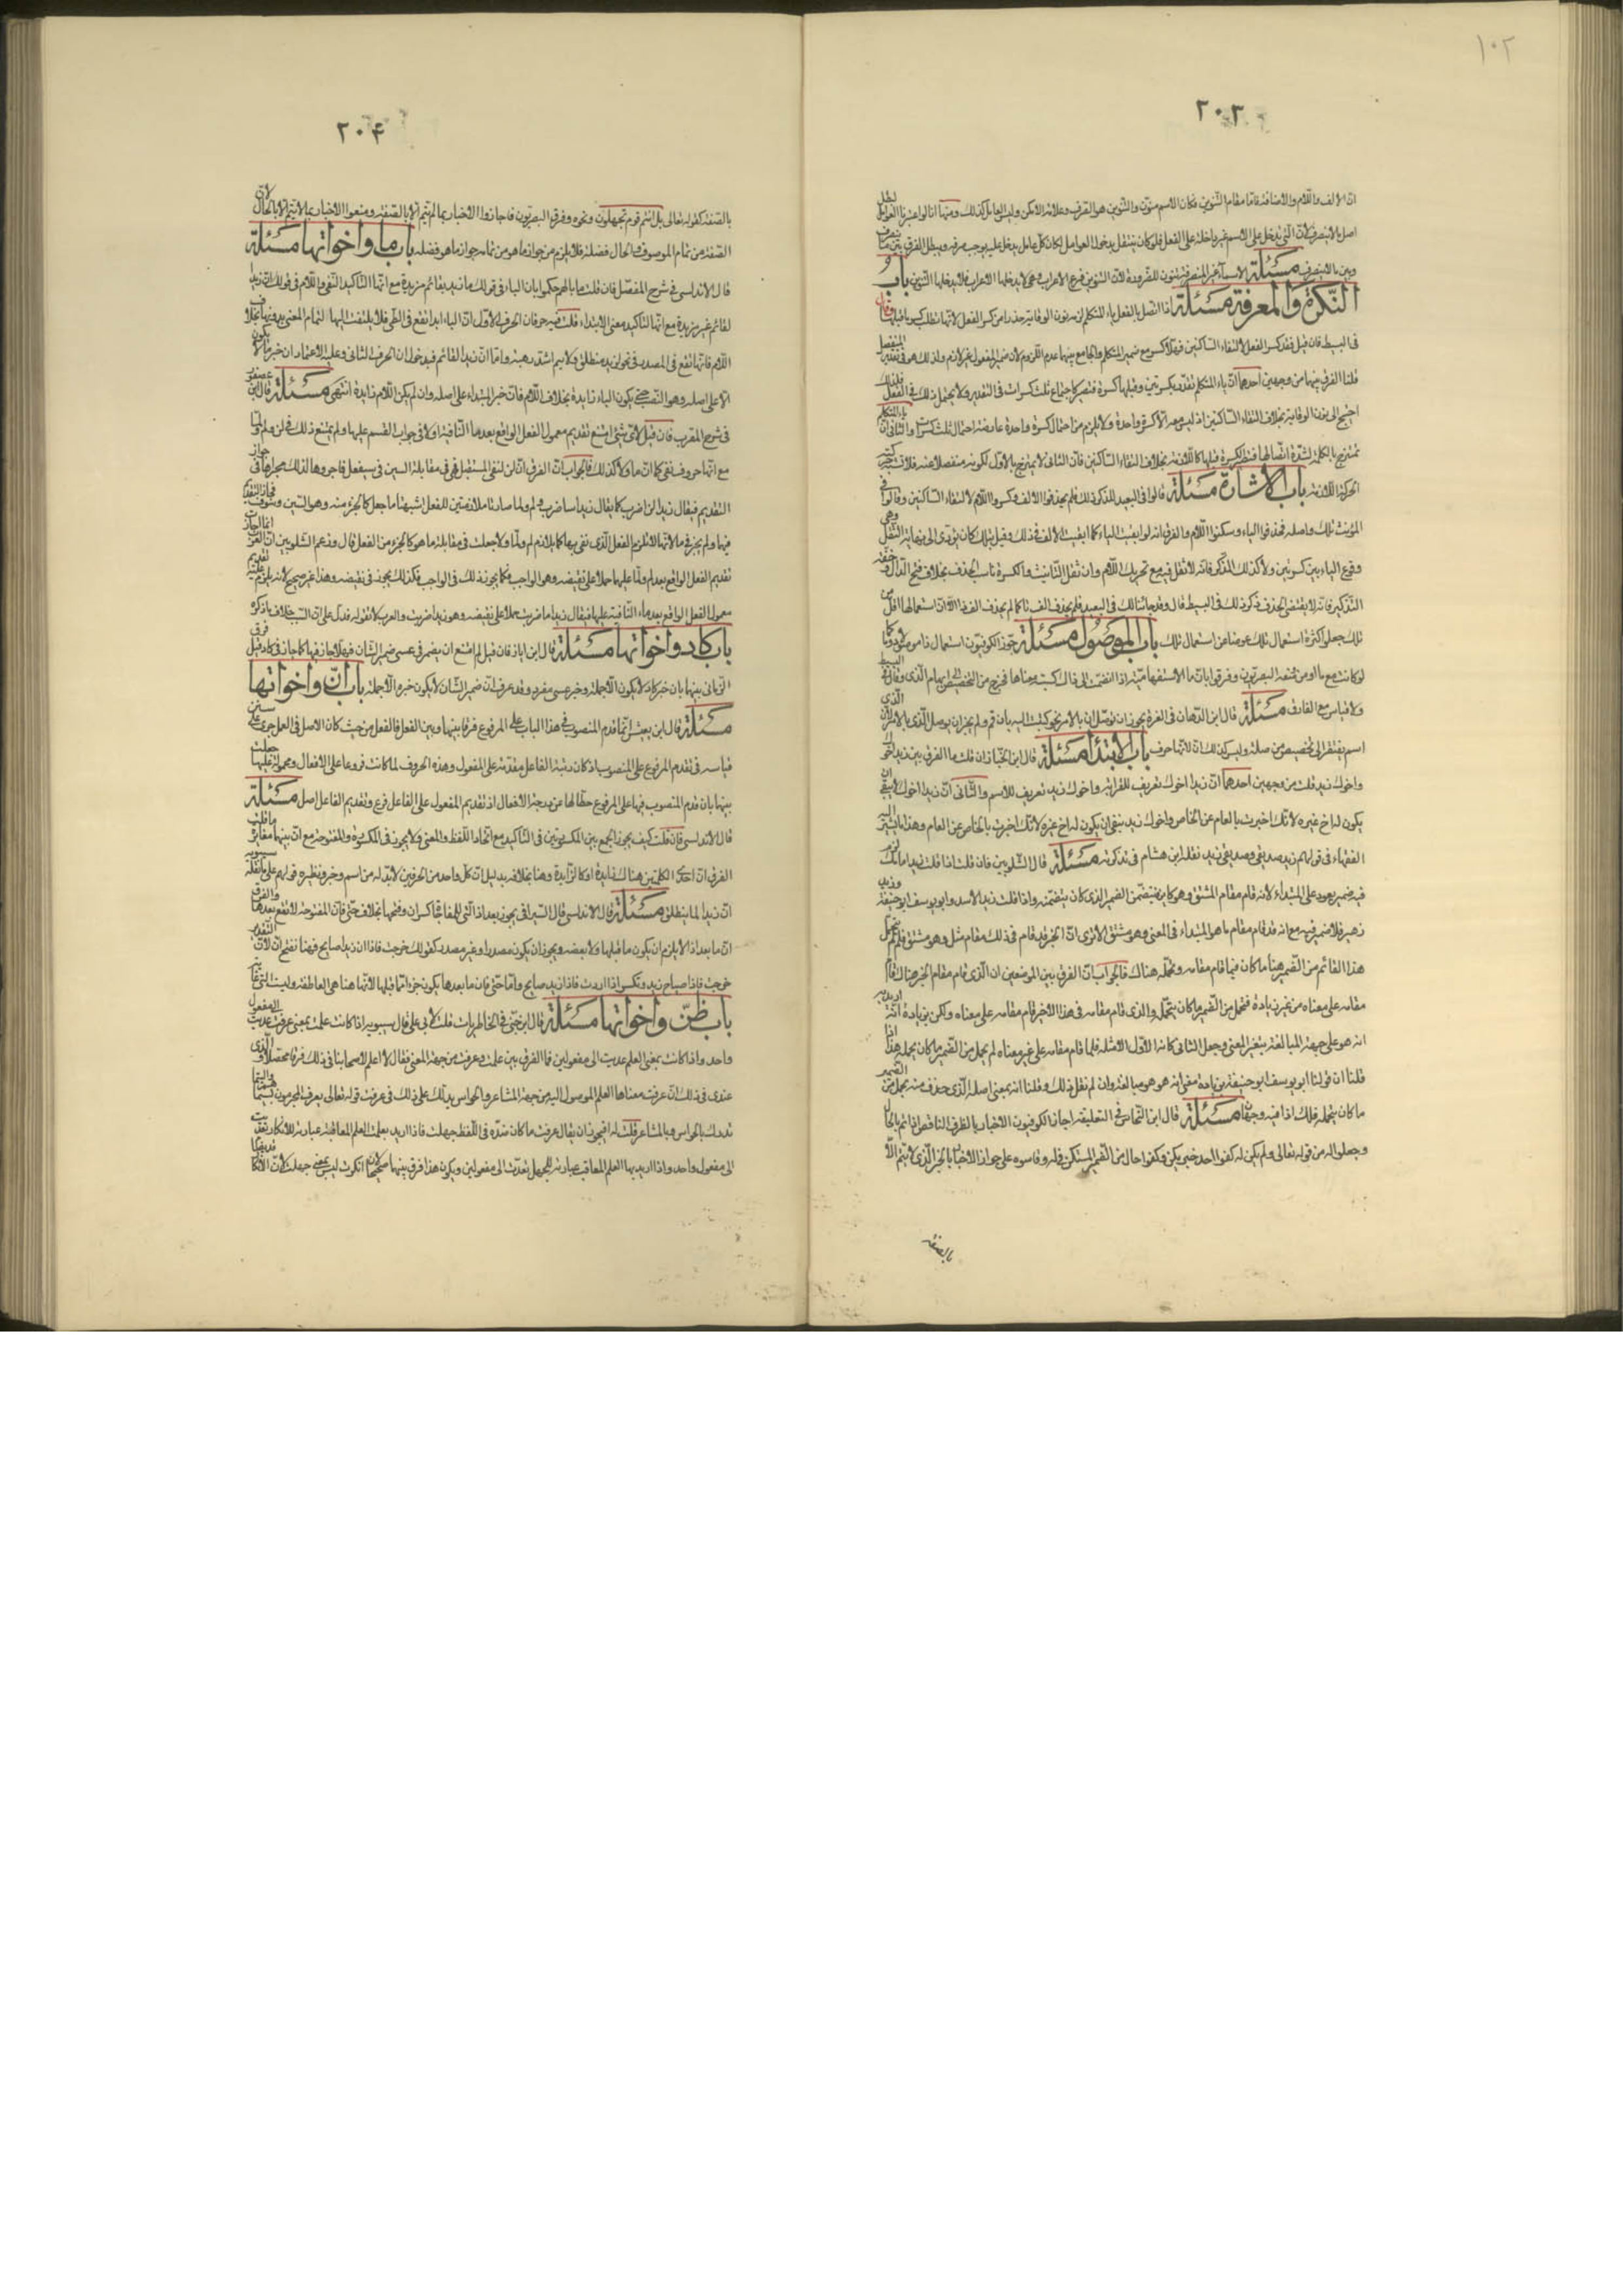 ١٠٢
٢٠٣
ان الالف واللام والاضافة قاما مقام التنوين فكان الاسم منون والتنوين هو الصرف وعلامة الامكن وليس العوامل كذلك ومنها انا لو اعتبرنا العوامل لبطل
اصل ما لا ينصرف لان التي تدخل على الاسم غير داخلة على الفعل فلو كان ينتقل بدخول العوامل لكان كل عامل يدخل عليه يوجب صرفه ويبطل الفرق بين ما ينصرف
وبين ما لا ينصرف مسئلة الاسماء غير المنصرفة تنون للضرورة لان التنوين فرع الاعراب وهي لا يدخلها الاعراب فلا يدخلها التنوين باب
النكرة والمعرفة مسئلة اذا اتصل بالفعل ياء المتكلم لزمه نون الوقاية حذرا من كسر الفعل لانها تطلب كسر ما قبلها وقال
في البسيط فان قيل فقد كسر الفعل لالتقاء الساكنين فهلا كسر مع ضمير المتكلم والجامع بينهما عدم اللزوم لان ضمير المفعول غير لازم ولذلك هو في تقدير المنفصل
قلنا الفرق بينهما من وجهين احدهما ان ياء المتكلم تقدر بكسرتين وقبلها كسرة فتصير كاجتماع ثلث كسرات في التقدير ولا يحتمل ذلك في الفعل فلذلك
احتيج الى نون الوقاية بخلاف التقاء الساكنين اذ ليس معه الا كسرة واحدة ولا يلزم من احتمال كسرة واحدة عارضة احتمال ثلث كسرات والثاني ان ياء المتكلم
تمتزج بالكلمة لشدة اتصالها فتصير الكسرة قبلها كاللازمة بخلاف التقاء الساكنين فان الثاني لا يمتزج بالاول لكونه منفصلا عنه فلا تشبه حركته
الحركة اللازمة باب الاشارة مسئلة قالوا في البعيد للمذكر ذلك فلم يحذفوا الالف وكسروا اللام لالتقاء الساكنين وقالوا في
المؤنث تلك واصله فحذفوا الياء وسكنوا اللام والفرق انه لو ابقيت الياء كما ابقيت الالف في ذلك وقيل تيلك كان يؤدي الى نهاية الثقل وهي
وقوع الياء بين كسرتين ولا كذلك المذكر فانه لا ثقل فيه مع تحريك اللام وان ثقل التانيث والكسرة ناسب الحذف بخلاف فتح الذال وخفة
التذكير فانه لا يقتضي الحذف ذكر ذلك في البسيط قال وقد جاء تالك في البعيد فلم يحذف الف تا كما لم يحذف الف ذا الا ان استعمالها اقل من
تلك جعلوا كثرة استعمال تلك عوضا عن استعمال تالك باب الموصول مسئلة جوز الكوفيون استعمال ذا موصولا دون ما كما
لو كانت مع ما او من ومنعه البصريون وفرقوا بان ما الاستفهامية اذا انضمت الى ذا اكسبته معناها فخرج من التخصيص الى ابهام الذي وقال في البسيط
ولا قياس مع الفارق مسئلة قال ابن الدهان في الغرة يجوز ان توصل ان بالامر نحو كتبت اليه بان قم ولم يجز ان يوصل الذي بالامر لان الذي
اسم يفتقر الى تخصيص من صلة وليس كذلك ان لانها حرف باب الابتدا مسئلة قال ابن الخباز ان قلت ما الفرق بين زيد اخوك
واخوك زيد قلت من وجهين احدهما ان زيد اخوك تعريف للقرابة واخوك زيد تعريف للاسم والثاني ان زيد اخوك لا ينفي ان
يكون له اخ غيره لانك اخبرت بالعام عن الخاص واخوك زيد ينفي ان يكون له اخ غيره لانك اخبرت بالخاص عن العام وهذا ما يشير اليه
الفقهاء في قولهم زيد صديقي وصديقي زيد نقله ابن هشام في تذكرته مسئلة قال الشلوبين فان قلت اذا قلت زيد امامك لزم
فيه ضمير يعود على المبتداء لانه قام مقام المشتق وهو كاين فتضمن الضمير الذي كان يتضمنه واذا قلت زيد الاسد وابو يوسف ابو حنيفة وزيد
زهير فلا ضمير فيه مع انه قد قام مقام ما هو المبتداء في المعنى وهو مشتق الا ترى ان الخبر قد قام في ذلك مقام مثل وهو مشتق فلم لم يتحمل
هذا القائم من الضمير هنا ما كان فيما قام مقامه وتحمله هناك فالجواب ان الفرق بين الموضعين ان الذي قام مقام الخبر هناك قام
مقامه على معناه من غير زيادة فتحمل من الضمير ما كان يتحمل والذي قام مقامه في هذا الاخر قام مقامه على معناه ولكن بزيادة انه اريد به
انه هو على جهة المبالغة بتغير المعنى وجعل الثاني كانه الاول الامثله فلما قام مقامه على غير معناه لم يحمل من الضمير ما كان يحمله هذا اذا
قلنا ان قولنا ابو يوسف ابو حنيفة بزيادة معنى انه هو هو مبالغة وان لم نقل ذلك وقلنا انه بمعنى اصله الذي حذف منه يحمل من الضمير
ما كان يتحمله فلك اذا فيه وجهان مسئلة قال ابن النحاس في التعليقة اجاز الكوفيون الاخبار بالظرف الناقص اذا تم بالحال
وجعلوا له من قوله تعالى ولم يكن له كفوا احد خبر يكن وكفوا حال من الضمير المستكن في له وقاسوه على جواز الاخبار بالخبر الذي لا يتم الا
بالصفة
٢٠۴
بالصفة كقوله تعالى بل انتم قوم تجهلون ونحوه وفرق البصريون فاجازوا الاخبار بما لم يتم الا بالصفة ومنعوا الاخبار بما لا يتم الا بالحال لان
الصفة من تمام الموصوف والحال فضلة فلا يلزم من جواز ما هو من تمامه جواز ما هو فضله باب ما واخواتها مسئلة
قال الاندلسي في شرح المفصل فان قلت ما بالهم حكموا بان الباء في قولك ما زيد بقائم مزيدة مع انها لتاكيد النفي واللام في قولك ان زيدا
لقائم غير مزيدة مع انها لتاكيد معنى الابتداء قلت فان الحرف الاول ان الباء ابدا تقع في الطي فلا يلتفت اليها لتمام المعنى بدونها بخلاف
اللام فانها تقع في الصدر في نحو لزيد منطلق ولانتم اشد رهبة واما ان زيدا لقائم فبدخول ان الحرف الثاني وعليه الاعتماد ان خبر ما لا يكون
الا على اصله وهو النصب حتى يكون الباء زايدة بخلاف اللام فان خبر المبتداء على اصله وان لم يكن اللام زايدة انتهى مسئلة قال ابن عصفور
في شرح المقرب فان قيل لاي شيء امتنع تقديم معمول الفعل الواقع بعد ما النافية او لا في جواب القسم عليها ولم يمتنع ذلك في لن ولم ولما
مع انها حروف نفي كما ان ما ولا كذلك فالجواب ان الفرق ان لن لنفي المستقبل فهي في مقابلة السين في سيفعل فاجروها لذلك مجراها في جواز
التقديم فيقال زيدا لن اضرب كما يقال زيدا ساضرب ولم ولما صارتا ملازمتين للفعل اشبهتا ما جعل كالجزء منه وهو السين وسوف فجاز التقديم
فيها ولم يجز في ما لانها لا تلزم الفعل الذي نفي بها كما يلازم لم ولما ولا جعلت في مقابلة ما هو كالجزء من الفعل قال وزعم الشلوبين ان العرب انما اجازت
تقديم الفعل الواقع بعد لم ولما عليها حملا على نقيضه وهو الواجب فكما يجوز ذلك في الواجب فكذلك يجوز في نقيضه وهذا غير صحيح لانه يلزم عليه تقديم
معمول الفعل الواقع بعد ما النافية عليها فيقال زيدا ما ضربت حملا على نقيضه وهو زيدا ضربت والعرب لا تقوله فدل على ان السبب خلاف ما ذكره
باب كاد واخواتها مسئلة قال ابن اياز فان قيل لم امتنع ان يضمر في عسى ضمير الشان فهلا جاز فيها كما جاز في كاد قيل فرق
الرماني بينهما بان خبر كاد لا يكون الا جملة وخبر عسى مفرد وقد عرفت ان ضمير الشان لا يكون خبره الا جملة باب ان واخواتها
مسئلة قال ابن يعيش انما قدم المنصوب في هذا الباب على المرفوع فرقا بينها وبين الفعل فالفعل من حيث كان الاصل في العمل جرى على سنن
قياسه في تقدم المرفوع على المنصوب اذ كان رتبة الفاعل مقدمة على المفعول وهذه الحروف لما كانت فروعا على الافعال ومحمولة عليها جعلت
بينها بان قدم المنصوب فيها على المرفوع حطا لها عن درجة الافعال اذ تقديم المفعول على الفاعل فرع وتقديم الفاعل اصل مسئلة
قال الاندلسي فان قلت كيف يجوز الجمع بين المكسورتين في التاكيد مع اتحاد اللفظ والمعنى ولا يجوز في المكسورة والمفتوحة مع ان بينهما مغايرة ما قلت
الفرق ان احدى الكلمتين هناك زايدة او كالزايدة وهنا بخلافه بدليل ان كل واحد من الحرفين لابد له من اسم وخبر ونظيره قولهم على ما نقله سيبويه
ان زيدا لما لينطلقن مسئلة قال الاندلسي قال السيرافي يجوز بعد اذا التي للمفاجاة كسر ان وفتحها بخلاف حتى فان المفتوحة لا تقع بعدها والفرق
ان ما بعد اذا لا يلزم ان يكون ما قبلها ولا بعضه ويجوز ان يكون مصدرا وغير مصدر كقولك خرجت فاذا ان زيدا صايح فهنا تفتح ان لان التقدير
خرجت فاذا صياح زيد وتكسر اذا اردت فاذا زيد صايح واما حتى فان ما بعدها يكون جزءا مما قبلها لانها هنا هي العاطفة وليست التي غاية
باب ظن واخواتها مسئلة قال ابن جني في الخاطريات قلت لابي علي قال سيبويه اذا كانت علمت بمعنى عرفت عديت الى مفعول
واحد واذا كانت بمعنى العلم عديت الى مفعولين فما الفرق بين علمت وعرفت من جهة المعنى فقال لا اعلم لاصحابنا في ذلك فرقا محصلا والذي
عندي في ذلك ان عرفت معناها العلم الموصول اليه من جهة المشاعر والحواس يدلك على ذلك في عرفت قوله تعالى يعرف المجرمون بسيماهم والسيما
تدرك بالحواس وبالمشاعر قلت له افيجوز ان يقال عرفت ما كان ضده في اللفظ جهلت فاذا اريد بعلمت العلم المعاقبة عبارته للانكار تعدت
الى مفعول واحد واذا اريد بها العلم المعاقب عبارته للجهل تعدت الى مفعولين ويكون هذا فرق بينهما صحيحا لان انكرت ليس بمعنى جهلت لان الانكار